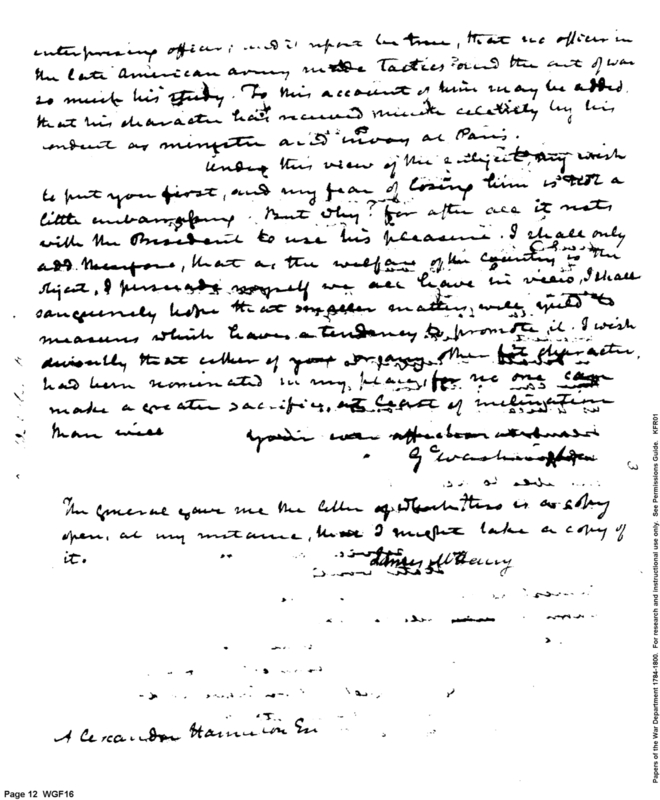 enterprising officer; and if report be true, that no officer in
the late American army made Tactics and the art of war
so much his study. To this account of him may be added
that his character has received much celebrity by his
conduct as minister and envoy at Paris.
Under this view of the subject, my wish
to put you first, and my fear of losing him is not a
little embarrassing. But why? for after all it rests
with the President to use his pleasure. I shall only
add therefore, that as the welfare of the country is the
object, I persuade myself we all have in view, I shall
sanguinely hope that smaller matters will yield to
measures which have a tendency to promote it. I wish
devoutly that either of you or any other fit character
had been nominated in my place; for no one can
make a greater sacrifice, at least of inclination
than will your ever affectionate
Go Washington
3
The general gave me the letter of which this is a copy
open, at my instance, that I might take a copy of
it.
James McHenry
Alexander Hamilton Esq
Page 12 WGF16
Papers of the War Department 1784-1800. For research and instructional use only. See Permissions Guide. KFR01